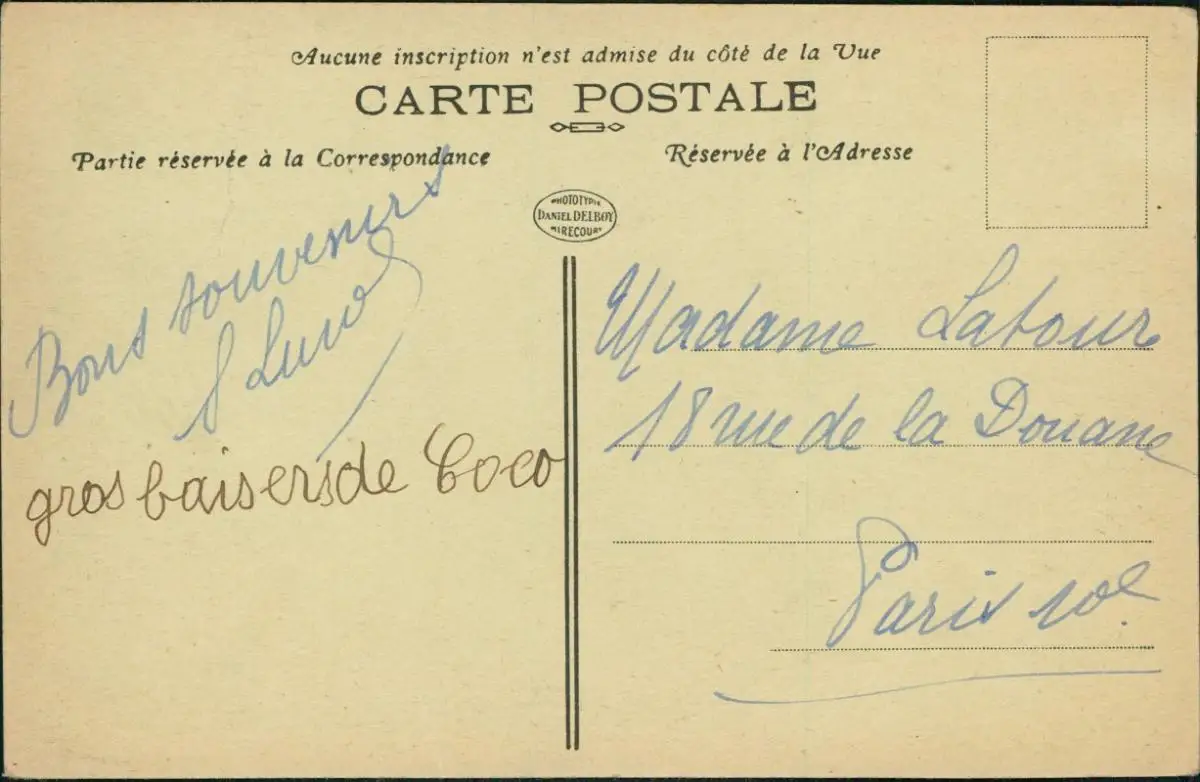 Aucune inscription n'est admise du côté de la Vue
CARTE POSTALE
Partie réservée à la Correspondance
Réservée à l'Adresse
PHOTOTYPIE
DANIEL DELBOY
MIRECOURT
Bons souvenirs
gros baisers de Coco
Madame Latour
18 rue de la Douane
Paris 10e.